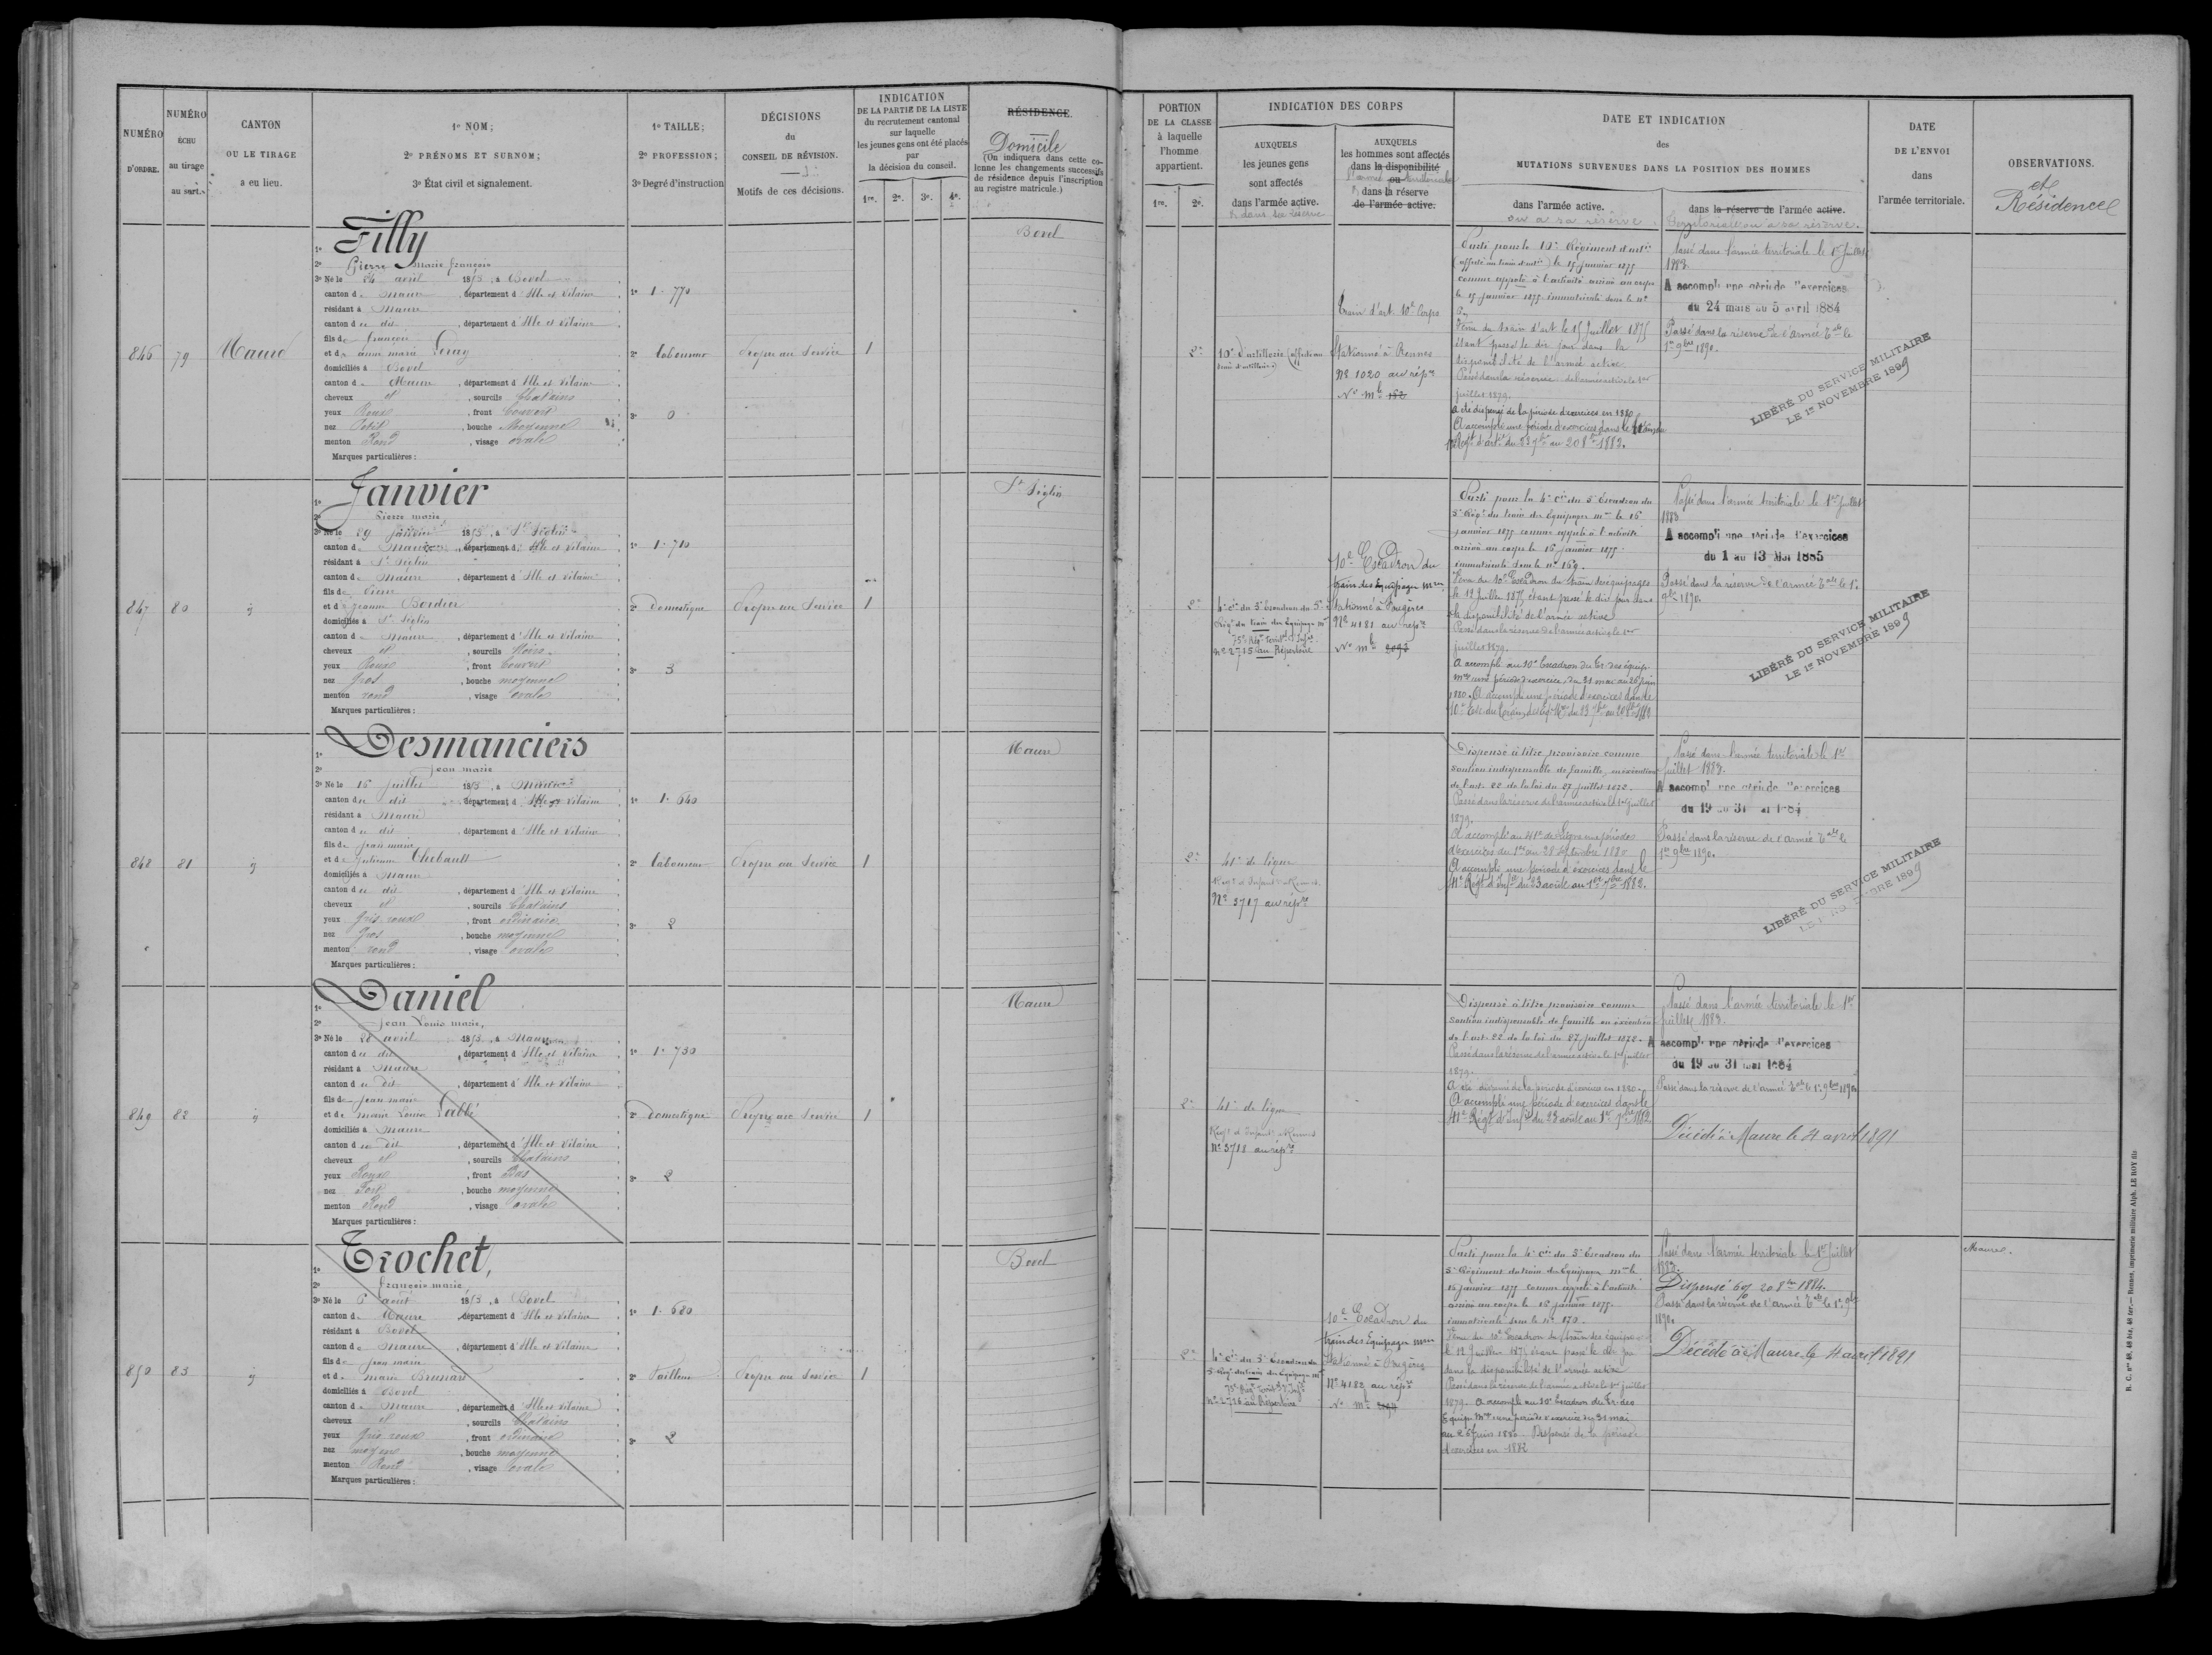 NUMÉRO
D'ORDRE.
NUMÉRO
ÉCHU
au tirage
au sort.
CANTON
OU LE TIRAGE
a eu lieu.
1º NOM;
2º PRÉNOMS ET SURNOM;
3º État civil et signalement.
1º TAILLE;
2º PROFESSION;
3º Degré d'instruction
DÉCISIONS
du
CONSEIL DE RÉVISION.
Motifs de ces décisions.
INDICATION
DE LA PARTIE DE LA LISTE
du recrutement cantonal
sur laquelle
les jeunes gens ont été placés
par
la décision du conseil.
1re. 2e. 3e. 4e.
RÉSIDENCE.
Domicile
(On indiquera dans cette co-
lonne les changements successifs
de résidence depuis l'inscription
au registre matricule.)
846 79 Maure
1º Filly
2º Pierre marie françois
3º Né le 24 avril 1853, à Bovel
canton de Maure, département d'Ille et Vilaine
résidant à Maure
canton du dit, département d'Ille et Vilaine
fils de françois
et de anne marie Leray
domiciliés à Bovel
canton de Maure, département d'Ille et Vilaine
cheveux et, sourcils Chatains
yeux Roux, front Couvert
nez Petit, bouche Moyenne
menton Rond, visage ovale
Marques particulières :
1º 1.770
2º laboureur
3º 0
Propre au Service
1
Bovel
847 80 id
1º Janvier
2º Pierre marie
3º Né le 29 janvier 1853, à St Séglin
canton de Maure, département d'Ille et Vilaine
résidant à St Séglin
canton de Maure, département d'Ille et Vilaine
fils de Pierre
et de jeanne Bordier
domiciliés à St Séglin
canton de Maure, département d'Ille et Vilaine
cheveux et, sourcils Noirs
yeux Roux, front Couvert
nez Gros, bouche moyenne
menton rond, visage ovale
Marques particulières :
1º 1.710
2º domestique
3º 3
Propre au Service
1
St Séglin
848 81 id
1º Desmanciers
2º jean marie
3º Né le 16 juillet 1853, à Maure
canton du dit, département d'Ille et Vilaine
résidant à Maure
canton du dit, département d'Ille et Vilaine
fils de jean marie
et de julienne Thebault
domiciliés à Maure
canton du dit, département d'Ille et Vilaine
cheveux et, sourcils Chatains
yeux Gris roux, front ordinaire
nez Gros, bouche moyenne
menton rond, visage ovale
Marques particulières :
1º 1.640
2º laboureur
3º 2
Propre au Service
1
Maure
849 82 id
1º Daniel
2º jean Louis marie,
3º Né le 28 avril 1853, à Maure
canton du dit, département d'Ille et Vilaine
résidant à Maure
canton du dit, département d'Ille et Vilaine
fils de jean marie
et de marie Louise Labbé
domiciliés à Maure
canton du dit, département d'Ille et Vilaine
cheveux et, sourcils Chatains
yeux Roux, front Bas
nez Fort, bouche moyenne
menton Rond, visage ovale
Marques particulières :
1º 1.730
2º domestique
3º 2
Propre au Service
1
Maure
850 83 id
1º Trochet,
2º françois marie
3º Né le 6 août 1853, à Bovel
canton de Maure, département d'Ille et Vilaine
résidant à Bovel
canton de Maure, département d'Ille et Vilaine
fils de jean marie
et de marie
domiciliés à Bovel
canton de Maure, département d'Ille et Vilaine
cheveux et, sourcils Chatains
yeux Gris roux, front ordinaire
nez moyen, bouche moyenne
menton Rond, visage ovale
Marques particulières :
1º 1.680
2º Tailleur
3º 2
Propre au Service
1
Bovel
PORTION
DE LA CLASSE
à laquelle
l'homme
appartient.
1re. 2e.
INDICATION DES CORPS
AUXQUELS
les jeunes gens
sont affectés
dans l'armée active.
& dans sa réserve
AUXQUELS
les hommes sont affectés
dans la disponibilité
ou
l'armée territoriale
& dans la réserve
de l'armée active.
DATE ET INDICATION
des
MUTATIONS SURVENUES DANS LA POSITION DES HOMMES
dans l'armée active.
ou a sa réserve.
dans la réserve de l'armée active.
territoriale ou à sa réserve.
DATE
DE L'ENVOI
dans
l'armée territoriale.
OBSERVATIONS.
et
Résidence
2e
10e d'artillerie (affecté au
train d'artillerie)
Train d'art. 10e Corps
Stationné à Rennes
No 1020 au répre
No mle 182
Parti pour le 10e Régiment d'artie
(affecté au train d'artie) le 15 janvier 1875
comme appelé à l'activité arrivé au corps
le 15 janvier 1875 immatriculé sous le no
Venu du train d'art. le 15 juillet 1875
étant passé le dit jour dans la
disponibilité de l'armée active.
Passé dans la réserve de l'armée active le 1er
juillet 1879.
A été dispensé de la période d'exercices en 1880
A accompli une période d'exercices dans le
Passé dans l'armée territoriale le 1er Juillet
1883
A accompli une période d'exercices
du 24 mars au 5 avril 1884
Passé dans la réserve de l'armée Tale le
1er 9bre 1890.
LIBÉRÉ DU SERVICE MILITAIRE
LE 1er NOVEMBRE 1899
2e
4e cie du 5e Escadron du 5e
Régt du train des Equipages mres
75e Régt territal d'Infie
no 2715 au Répertoire
10e Escadron du
train des Equipages mres
Stationné à Fougères
No 4181 au répre
No mle
Parti pour la 4e cie du 5e Escadron du
5e Régt du train des Equipages mres le 16
janvier 1875 comme appelé à l'activité
arrivé au corps le 16 janvier 1875.
immatriculé sous le no 169.
Venu du 10e Escadron du train des équipages
le 12 juillet 1875 étant passé le dit jour dans
la disponibilité de l'armée active
Passé dans la réserve de l'armée active le 1er
juillet 1879.
A accompli au 10e Escadron du tr. des équip.
mres une période d'exercices du 31 mai au 26 juin
1880. A accompli une période d'exercices dans le
Passé dans l'armée territoriale le 1er Juillet
1883
A accompli une période d'exercices
du 1 au 13 Mai 1885
Passé dans la réserve de l'armée Tale le 1er
9bre 1890.
LIBÉRÉ DU SERVICE MILITAIRE
LE 1er NOVEMBRE 1899
2e
41e de ligne
Régt d'Infant à Rennes.
No 3717 au répre
Dispensé à titre provisoire comme
soutien indispensable de famille, en exécution
de l'art. 22 de la loi du 27 juillet 1872.
Passé dans la réserve de l'armée active le 1er juillet
1879.
A accompli au 41e de Ligne une période
d'exercices du 1er au 28 septembre 1880
A accompli une période d'exercices dans le
41e Régt d'Infie du 23 août au 1er 7bre 1882.
Passé dans l'armée territoriale le 1er
juillet 1883.
A accompli une période d'exercices
du 19 au 31 mai 1884
Passé dans la réserve de l'armée Tale le
1er 9bre 1890.
LIBÉRÉ DU SERVICE MILITAIRE
LE 1er NOVEMBRE 1899
2e
41e de ligne
Régt d'Infant à Rennes
No 3718 au répre
Dispensé à titre provisoire comme
soutien indispensable de famille en exécution
de l'art. 22 de la loi du 27 juillet 1872.
Passé dans la réserve de l'armée active le 1er juillet
1879.
A été dispensé de la période d'exercices en 1880.
A accompli une période d'exercices dans le
41e Régt d'Infie du 23 août au 1er 7bre 1882
Passé dans l'armée territoriale le 1er
juillet 1883.
A accompli une période d'exercices
du 19 au 31 mai 1884
Passé dans la réserve de l'armée Tale le 1er 9bre 1890
Décédé à Maure le 4 avril 1891
2e
4e cie du 5e Escadron du
5e Régt du train des Equipages mres
75e Régt territal d'Infie
no 2716 au Répertoire
10e Escadron du
train des Equipages mres
Stationné à Fougères
No 4182 au répre
No mle
Parti pour la 4e cie du 5e Escadron du
5e Régiment du train des Equipages mres le
16 janvier 1875 comme appelé à l'activité
arrivé au corps le 16 janvier 1875.
immatriculé sous le no 170.
Venu du 10e Escadron du train des équipages
le 12 juillet 1875 étant passé le dit jour
dans la disponibilité de l'armée active
Passé dans la réserve de l'armée active le 1er juillet
1879. A accompli au 10e Escadron du tr. des
équip. mres une période d'exercices du 31 mai
au 26 juin 1880. Dispensé de la période
d'exercices en 1882
Passé dans l'armée territoriale le 1er Juillet
1883.
Dispensé 20 8bre 1884.
Passé dans la réserve de l'armée Tale le 1er 9bre
1890.
Décédé à Maure le 4 avril 1891
Maure.
R. C. nos 48, 48 bis, 48 ter. — Rennes, imprimerie militaire Alph. LE ROY fils